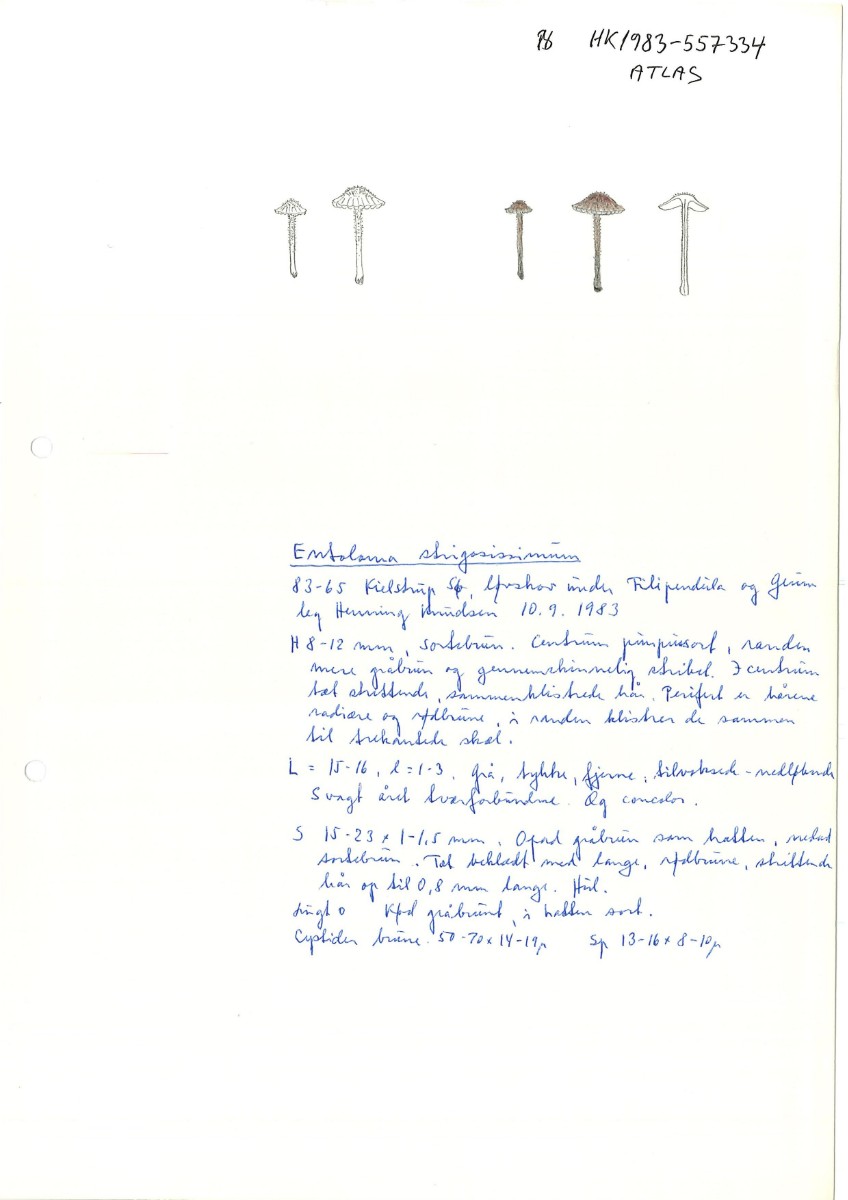 HK1983-557334
ATLAS
Entoloma strigosissimum
83-65 Kielstrup Sø, løvskov under Filipendula og Geum
leg Henning Knudsen 10.9.1983
H 8-12 mm, sortebrun. Centrum purpursort, randen
mere gråbrun og gennemskinnelig stribet. I centrum
tæt strittende, sammenklistrede hår. Perifert er hårene
radiære og rødbrune, i randen klistrer de sammen
til trekantede skæl.
L = 15-16, l = 1-3. Grå, tykke, fjerne, tilvoksede - nedløbende
Svagt året tværforbundne. Æg concolor.
S 15-23 x 1-1,5 mm. Opad gråbrun som hatten, nedad
sortebrun. Tæt beklædt med lange, rødbrune, strittende
hår op til 0,8 mm lange. Hul.
Lugt 0 Kød gråbrunt, i hatten sort.
Cystider brune 50-70 x 14-19µ Sp 13-16 x 8-10µ